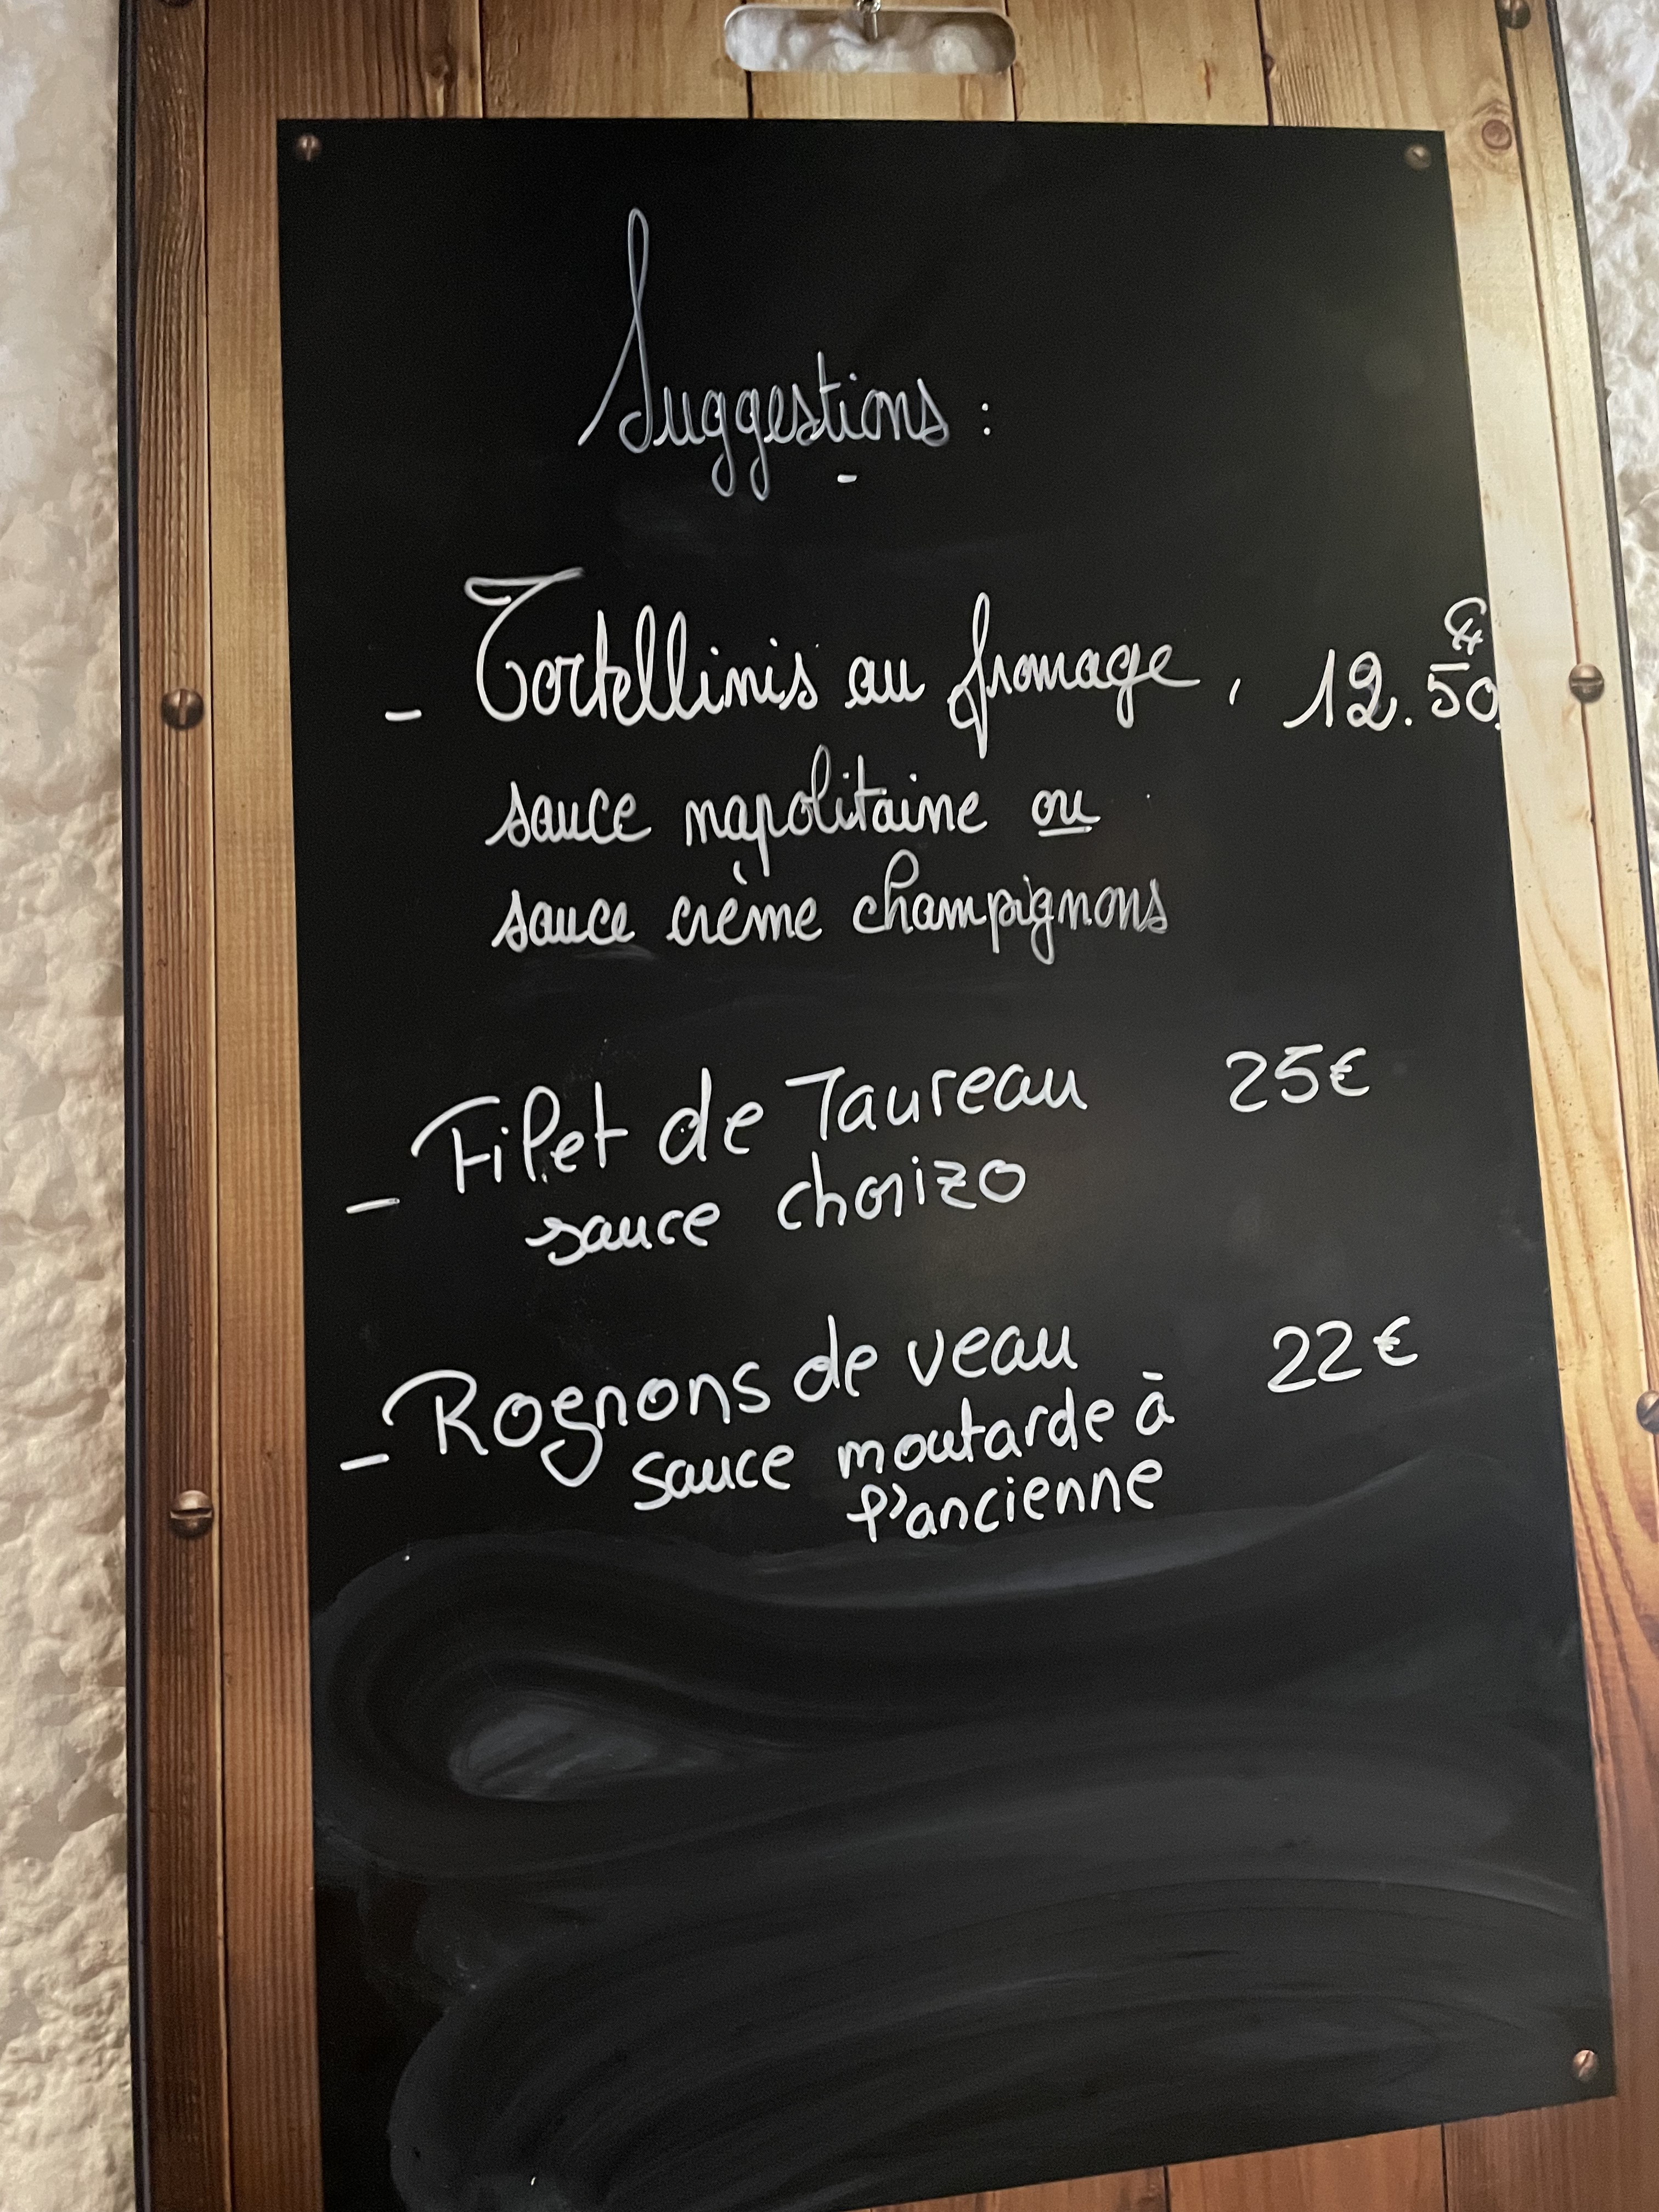 Suggestions :
- Tortellinis au fromage, 12.50€
sauce napolitaine ou
sauce crème champignons
- Filet de Taureau 25€
sauce chorizo
- Rognons de veau 22€
sauce moutarde à
l'ancienne